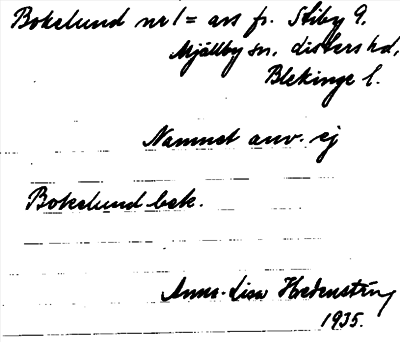 Bokelund nr 1 = avs fr. Stiby 9,
Mjällby sn, Listers hd,
Blekinge l.
Namnet anv. ej
Bokelund bek.
Anna-Lisa Hredenstiny
1935.